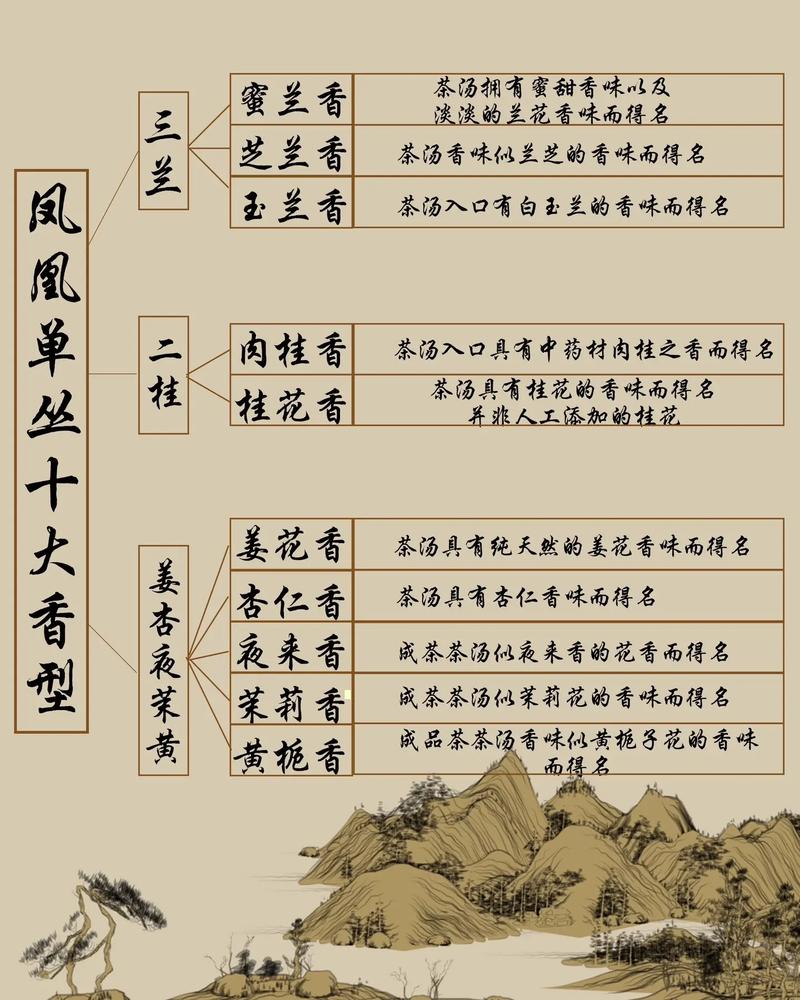 凤凰单丛十大香型
三兰
蜜兰香
茶汤拥有蜜甜香味以及
淡淡的兰花香味而得名
芝兰香
茶汤香味似兰芝的香味而得名
玉兰香
茶汤入口有白玉兰的香味而得名
二桂
肉桂香
茶汤入口具有中药材肉桂之香而得名
桂花香
茶汤具有桂花的香味而得名
并非人工添加的桂花
姜杏夜茉黄
姜花香
茶汤具有纯天然的姜花香味而得名
杏仁香
茶汤具有杏仁香味而得名
夜来香
成茶茶汤似夜来香的花香而得名
茉莉香
成茶茶汤似茉莉花的香味而得名
黄栀香
成品茶茶汤香味似黄栀子花的香味
而得名